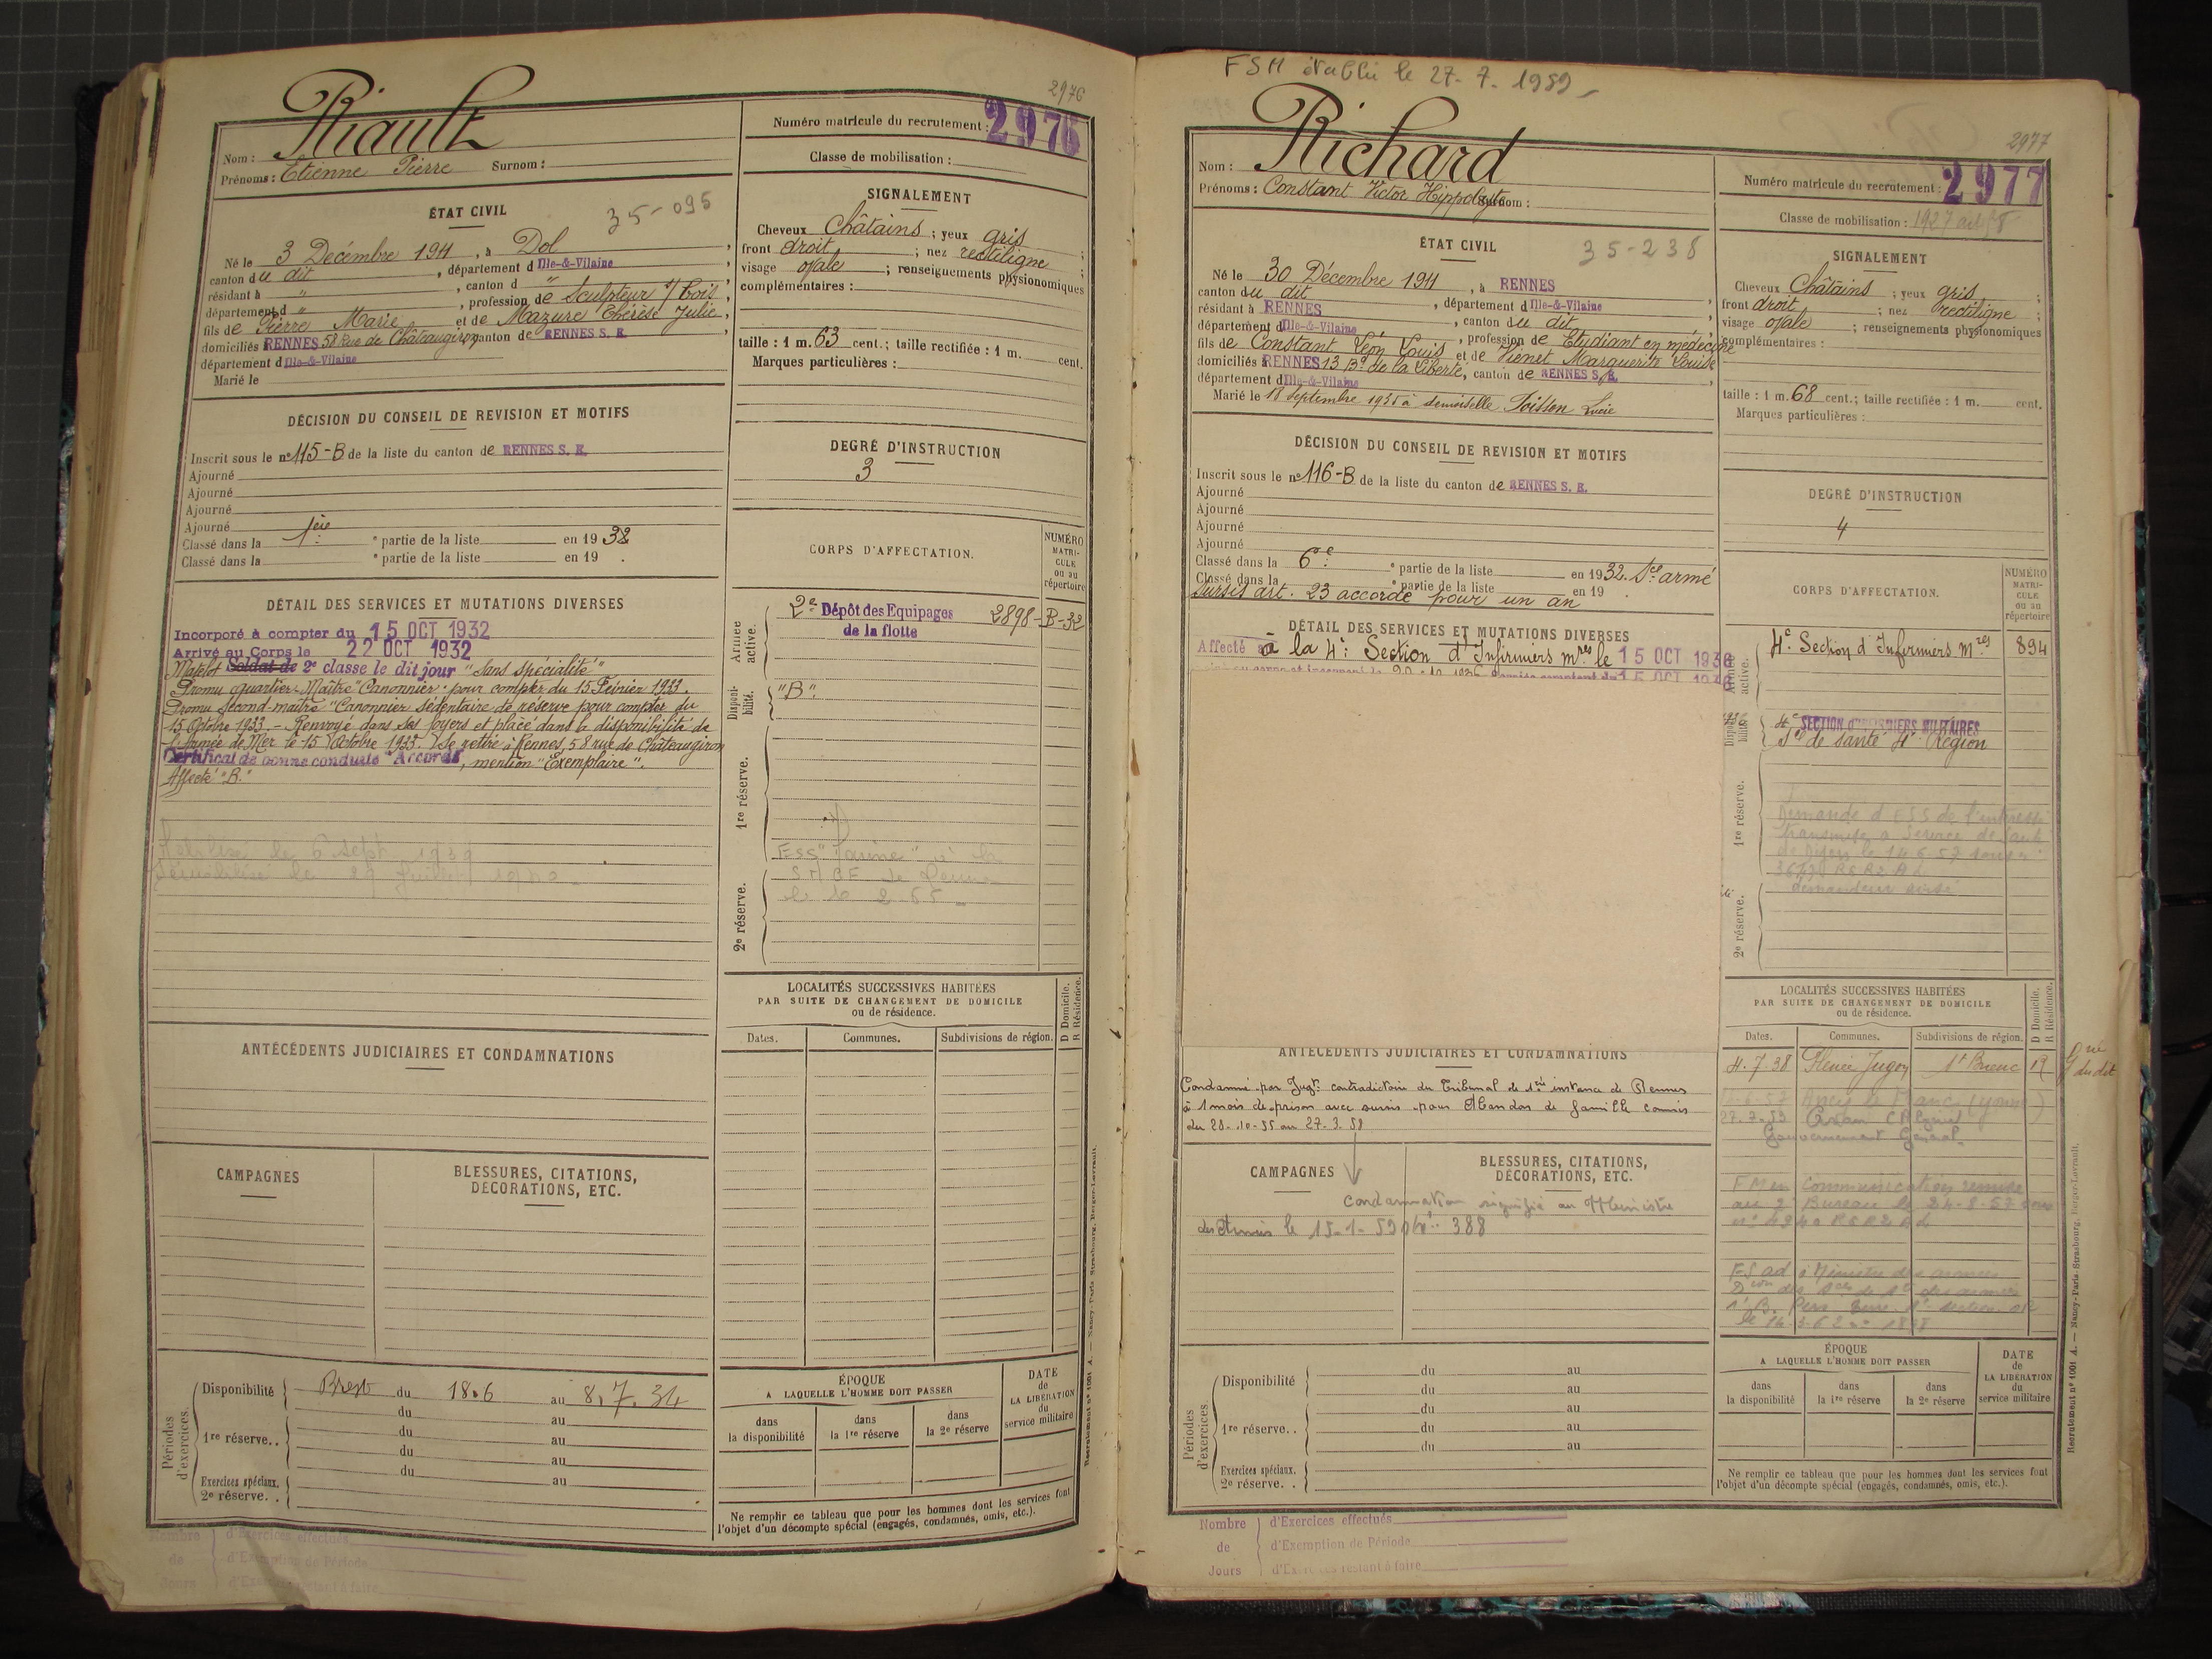 2976
Riault
Nom :
Numéro matricule du recrutement : 2976
Prénoms : Etienne Pierre Surnom :
Classe de mobilisation :
ÉTAT CIVIL
35-095
Né le 3 Décembre 1911, à Dol,
canton du dit, département d Ille-&-Vilaine,
résidant à ", canton d ",
département d ", profession de Sculpteur s/ bois,
fils de Pierre Marie et de Mazure Thérèse Julie,
domiciliés à RENNES 58 Rue de Châteaugiron canton de RENNES S. E.
département d Ille-&-Vilaine
Marié le
SIGNALEMENT
Cheveux Châtains ; yeux gris ;
front droit ; nez rectiligne ;
visage ovale ; renseignements physionomiques
complémentaires :
taille : 1 m. 63 cent.; taille rectifiée : 1 m. cent.
Marques particulières :
DÉCISION DU CONSEIL DE REVISION ET MOTIFS
Inscrit sous le n° 115-B de la liste du canton de RENNES S. E.
Ajourné
Ajourné
Ajourné
Ajourné
Classé dans la 1ère partie de la liste en 19 32
Classé dans la e partie de la liste en 19 .
DEGRÉ D'INSTRUCTION
3
DÉTAIL DES SERVICES ET MUTATIONS DIVERSES
Incorporé à compter du 15 OCT 1932
Arrivé au Corps le 22 OCT 1932
Matelot Soldat de 2e classe le dit jour "Sans spécialité"
Promu quartier-Maître "Canonnier" pour compter du 15 Février 1933.
Promu Second-maître "Canonnier sédentaire de réserve pour compter du
15 Octobre 1933. - Renvoyé dans ses foyers et placé dans la disponibilité de
l'Armée de Mer le 15 Octobre 1933. Se retire à Rennes, 58 rue de Châteaugiron
Certificat de bonne conduite "Accordé", mention "Exemplaire".
Affecté "B."
Mobilisé le 6 sept 1939
Démobilisé le 29 Juillet 1940
CORPS D'AFFECTATION.
NUMÉRO
MATRI-
CULE
ou au
répertoire
Armée active.
2e Dépôt des Equipages
de la flotte
2898-B-32
Disponi-
bilité.
"B".
1re réserve.
2e réserve.
LOCALITÉS SUCCESSIVES HABITÉES
PAR SUITE DE CHANGEMENT DE DOMICILE
ou de résidence.
D Domicile.
R Résidence.
Dates.
Communes.
Subdivisions de région.
ANTÉCÉDENTS JUDICIAIRES ET CONDAMNATIONS
CAMPAGNES
BLESSURES, CITATIONS,
DÉCORATIONS, ETC.
Périodes
d'exercices.
Disponibilité Brest du 18.6 au 8.7.34
du au
1re réserve.. du au
du au
du au
Exercices spéciaux.
2e réserve. .
ÉPOQUE
A LAQUELLE L'HOMME DOIT PASSER
dans
la disponibilité
dans
la 1re réserve
dans
la 2e réserve
DATE
de
LA LIBÉRATION
du
service militaire
Ne remplir ce tableau que pour les hommes dont les services font
l'objet d'un décompte spécial (engagés, condamnés, omis, etc.).
Nombre
de
Jours
d'Exercices effectués
d'Exemption de Période
d'Exercices restant à faire
FSM établi le 27-7-1959
2977
Richard
Nom :
Numéro matricule du recrutement : 2977
Prénoms : Constant Victor Hippolyte Surnom :
Classe de mobilisation : 1927
ÉTAT CIVIL
35-238
Né le 30 Décembre 1911, à RENNES
canton du dit, département d Ille-&-Vilaine
résidant à RENNES, canton du dit
département d Ille-&-Vilaine, profession de Etudiant en médecine
fils de Constant Léon Louis et de Vienet Marguerite Louise
domiciliés à RENNES 13 Bd de la Liberté, canton de RENNES S. E.
département d Ille-&-Vilaine
Marié le 18 Septembre 1935 à demoiselle Poisson Lucie
SIGNALEMENT
Cheveux Châtains ; yeux gris ;
front droit ; nez rectiligne ;
visage ovale ; renseignements physionomiques
complémentaires :
taille : 1 m. 68 cent.; taille rectifiée : 1 m. cent.
Marques particulières :
DÉCISION DU CONSEIL DE REVISION ET MOTIFS
Inscrit sous le n° 116-B de la liste du canton de RENNES S. E.
Ajourné
Ajourné
Ajourné
Ajourné
Classé dans la 6e partie de la liste en 1932. Sce armé
Classé dans la e partie de la liste en 19 .
Sursis art. 23 accordé pour un an
DEGRÉ D'INSTRUCTION
4
DÉTAIL DES SERVICES ET MUTATIONS DIVERSES
Affecté à la 4e Section d'Infirmiers mres le 15 OCT 1936
CORPS D'AFFECTATION.
NUMÉRO
MATRI-
CULE
ou au
répertoire
active.
4e Section d'Infirmiers mres
894
Disponi-
bilité.
4e SECTION d'INFIRMIERS MILITAIRES
Sce de santé 4e Région
1re réserve.
Demande d'ESS de l'intéressé
2e réserve.
LOCALITÉS SUCCESSIVES HABITÉES
PAR SUITE DE CHANGEMENT DE DOMICILE
ou de résidence.
D Domicile.
R Résidence.
Dates.
Communes.
Subdivisions de région.
4.7.38 Plénée Jugon St Brieuc
ANTÉCÉDENTS JUDICIAIRES ET CONDAMNATIONS
Condamné par Jugt contradictoire du Tribunal de 1ère instance de Rennes
à 1 mois de prison avec sursis pour Abandon de famille commis
du 28-10-55 au 27-3-58
CAMPAGNES
BLESSURES, CITATIONS,
DÉCORATIONS, ETC.
condamnation signifié au Ministre
des Armées le 15-1-59 n° 388
Périodes
d'exercices.
Disponibilité du au
du au
1re réserve.. du au
du au
du au
Exercices spéciaux.
2e réserve. .
ÉPOQUE
A LAQUELLE L'HOMME DOIT PASSER
dans
la disponibilité
dans
la 1re réserve
dans
la 2e réserve
DATE
de
LA LIBÉRATION
du
service militaire
Ne remplir ce tableau que pour les hommes dont les services font
l'objet d'un décompte spécial (engagés, condamnés, omis, etc.).
Recrutement n° 1001 A. — Nancy-Paris-Strasbourg, Berger-Levrault.
Nombre
de
Jours
d'Exercices effectués
d'Exemption de Période
d'Exercices restant à faire